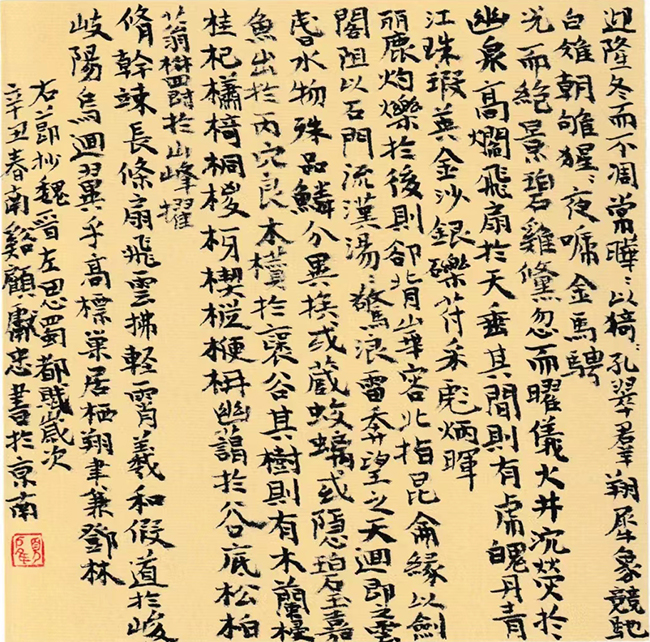 迎隆冬而不凋常曄〻以猗〻孔翠羣翔犀象競馳
白雉朝雊猩〻夜啼金馬騁
光而絶景碧雞儵忽而曜儀火井沉熒於
幽泉高爓飛扇於天垂其間則有虎魄丹青
江珠瑕英金沙銀礫苻采彪炳暉
麗灼爍於後則卻背華容北指昆侖緣以劍
閣阻以石門流漢湯〻驚浪雷奔望之天迴即之雲
昏水物殊品鱗介異族或藏蛟螭或隱碧玉嘉
魚出於丙穴良木櫕於裦谷其樹則有木蘭梫
桂杞櫹椅桐椶枒楔樅楩枏幽藹於谷底松柏
蓊鬱於山峰擢
脩幹竦長條扇飛雲拂輕霄羲和假道於峻
岐陽烏迴翼乎高標巢居栖翔聿兼鄧林
右節抄魏晋左思蜀都賦歲次
辛丑春南谿顧獻忠書於京南